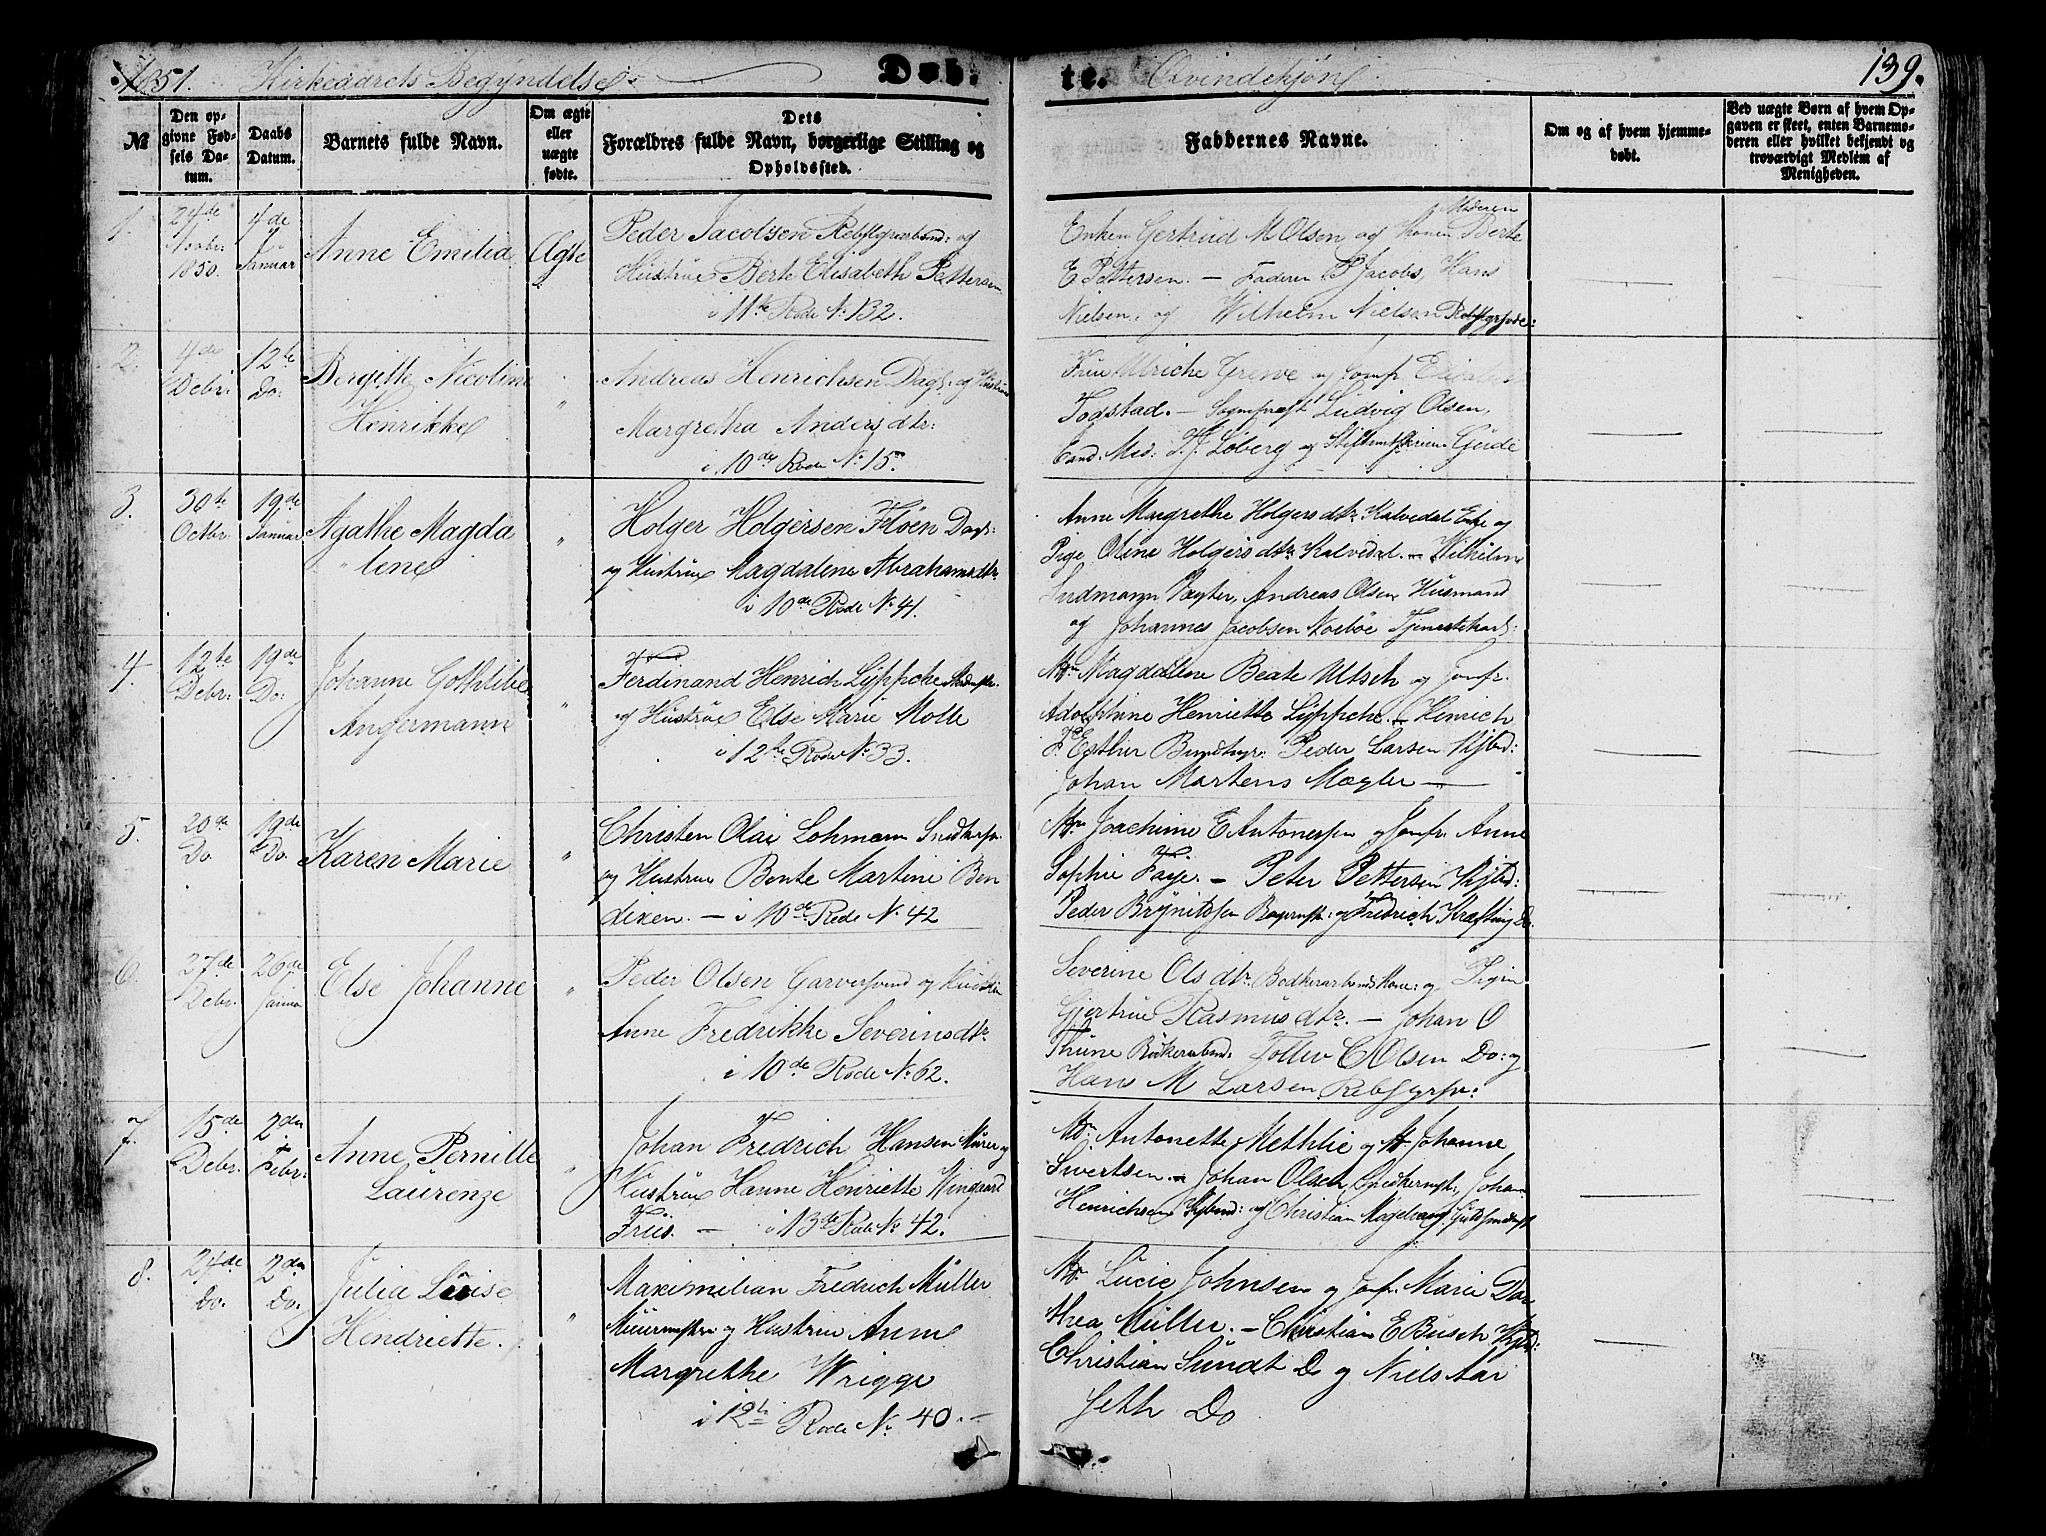 1851. Kirkeaarets Begyndelse Døb- te. Qvindekjøn 139.
№
Den opgivne Fødsels Datum.
Daabs Datum.
Barnets fulde Navn.
Om ægte eller uægte fødte.
Dets Forældres fulde Navn, borgerlige Stilling og Opholdssted.
Faddernes Navne.
Om og af hvem hjemmedøbt.
Ved uægte Børn af hvem Opgaven er skeet, enten Barnemoderen eller hvilket bekjendt og troværdigt Medlem af Menigheden.
1. 24de Novbr 1850. 4de Januar
Anne Emilia Ægte
Peder Jacobsen og
Hustrue Berte Elisabeth Pettersen
i 11te Rode № 132.
Moderen
Enken Gertrud M Olsen og Konen Berte
E Pettersen. — Faderen P Jacobs, Hans
Nielsen, og Wilhelm Nielsen
2. 4de Debr. 12te Do.
Bergitte Nicoline
Henrikke "
Andreas Henrichsen Dags: og Hustrue
Margretha Andersdtr:
i 10de Rode № 15.
Frue Ulriche Greve og Jomf.
Fogstad. — Ludvig Olsen,
Cand. Med: T.J. Löberg og Gude
3. 30te Octbr. 19de Januar
Agathe Magda
lene "
Holger Holgersen Flöen Dags:
og Hustrue Magdalene Abrahamsdtr
i 10de Rode № 41.
Anne Margrethe Holgersdtr Kalvedal Enke og
Pige Oline Holgersdtr Kalvedal. — Wilhelm
Andreas Olsen Husmand
og Johannes Jacobsen Tjenestekarl:
4. 12te Debr: 19de Do.
Johanne Gothlibe
Angermann "
Ferdinand Henrich Lyppche
og Hustrue Else Marie Molle
i 12te Rode № 33.
Md. Magdalene Beate Ultsch og Jomfr.
Adolphine Henriette Lyppche. — Henrich
Esther Peder Larsen Skibd:
Johan Martens Mægler —
5. 20de Do. 19de Do.
Karen Marie "
Christen Olai Lohmann
og Hustrue Bente Martine Ben
dixen. — i 10de Rode № 42
Md. Joachime E Antonessen og Jomfr. Anne
Sophie Faye. — Peter Pettersen
Peder og Fredrich Kræfting Do.
6. 27de Debr. 26de Januar
Else Johanne "
Peder Olsen Garversvend og Hustrue
Anne Fredrikke Severinsdtr
i 10de Rode № 62.
Severine Olsdtr Kone: og Pigen
Gjertrue Rasmusdtr. — Johan O
Thune Tollev C Olsen Do: og
Hans M Larsen
7. 15de Debr. 2den Febr.
Anne Pernille
Laurenze "
Johan Fredrich Hansen Murer og
Hustrue Hanne Henriette Wingaard
Friis. — i 13de Rode № 42.
Md. Antonette Methlie og Md Johanne
Sivertsen. — Johan Olsen Johan
Henrichsen og Christian
8. 24de Do. 2den Do.
Julia Lovise
Hendriette. "
Maximilian Fredrich Müller
og Hustrue Anne
Margrethe Wrigge
i 12te Rode № 40. —
Md. Lucie Johnsen og Jomfr. Marie Dor
thea Müller. — Christian E Busch
Christian Sundt Do og Niels Aar
seth Do